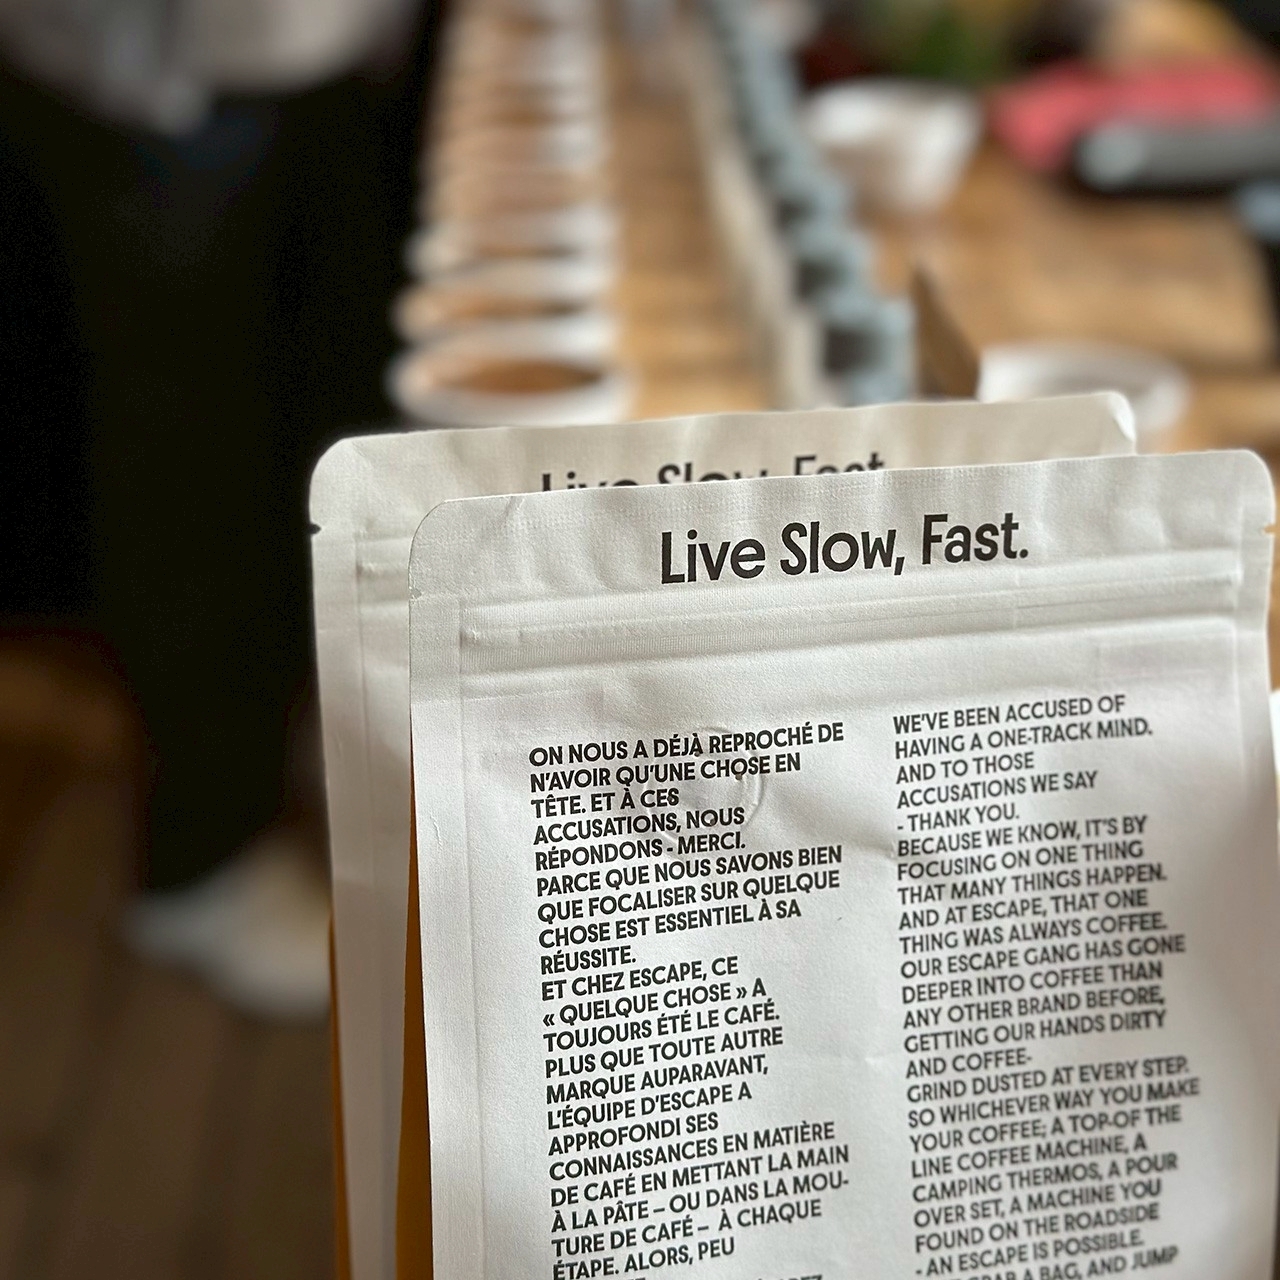 Live Slow, Fast.
Live Slow, Fast.
ON NOUS A DÉJÀ REPROCHÉ DE
N'AVOIR QU'UNE CHOSE EN
TÊTE. ET À CES
ACCUSATIONS, NOUS
RÉPONDONS - MERCI.
PARCE QUE NOUS SAVONS BIEN
QUE FOCALISER SUR QUELQUE
CHOSE EST ESSENTIEL À SA
RÉUSSITE.
ET CHEZ ESCAPE, CE
« QUELQUE CHOSE » A
TOUJOURS ÉTÉ LE CAFÉ.
PLUS QUE TOUTE AUTRE
MARQUE AUPARAVANT,
L'ÉQUIPE D'ESCAPE A
APPROFONDI SES
CONNAISSANCES EN MATIÈRE
DE CAFÉ EN METTANT LA MAIN
À LA PÂTE – OU DANS LA MOU-
TURE DE CAFÉ – À CHAQUE
ÉTAPE. ALORS, PEU
WE'VE BEEN ACCUSED OF
HAVING A ONE-TRACK MIND.
AND TO THOSE
ACCUSATIONS WE SAY
- THANK YOU.
BECAUSE WE KNOW, IT'S BY
FOCUSING ON ONE THING
THAT MANY THINGS HAPPEN.
AND AT ESCAPE, THAT ONE
THING WAS ALWAYS COFFEE.
OUR ESCAPE GANG HAS GONE
DEEPER INTO COFFEE THAN
ANY OTHER BRAND BEFORE,
GETTING OUR HANDS DIRTY
AND COFFEE-
GRIND DUSTED AT EVERY STEP.
SO WHICHEVER WAY YOU MAKE
YOUR COFFEE; A TOP-OF THE
LINE COFFEE MACHINE, A
CAMPING THERMOS, A POUR
OVER SET, A MACHINE YOU
FOUND ON THE ROADSIDE
- AN ESCAPE IS POSSIBLE.
GRAB A BAG, AND JUMP